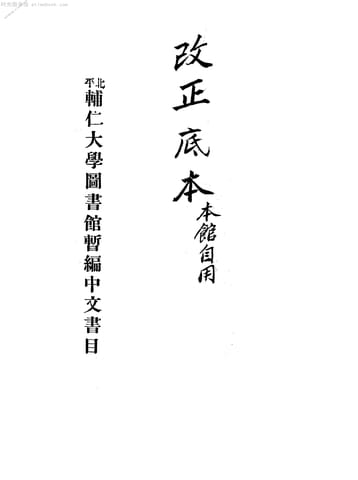 改正底本
本館自用
北平輔仁大學圖書館暫編中文書目